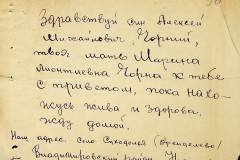 Здравствуй син Алексей
Михайлович, Чорний,
твоя мать Марина
Лионтиевна Чорна к тебе
с приветом, пока нахо-
жусь жива и здорова,
жду домой.
Наш адрес. село
Владимировский район